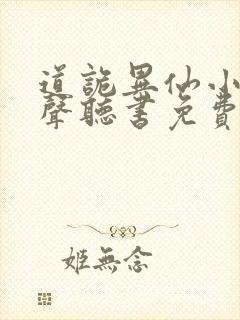 道詭異仙小
聲聽書免費
姬無念